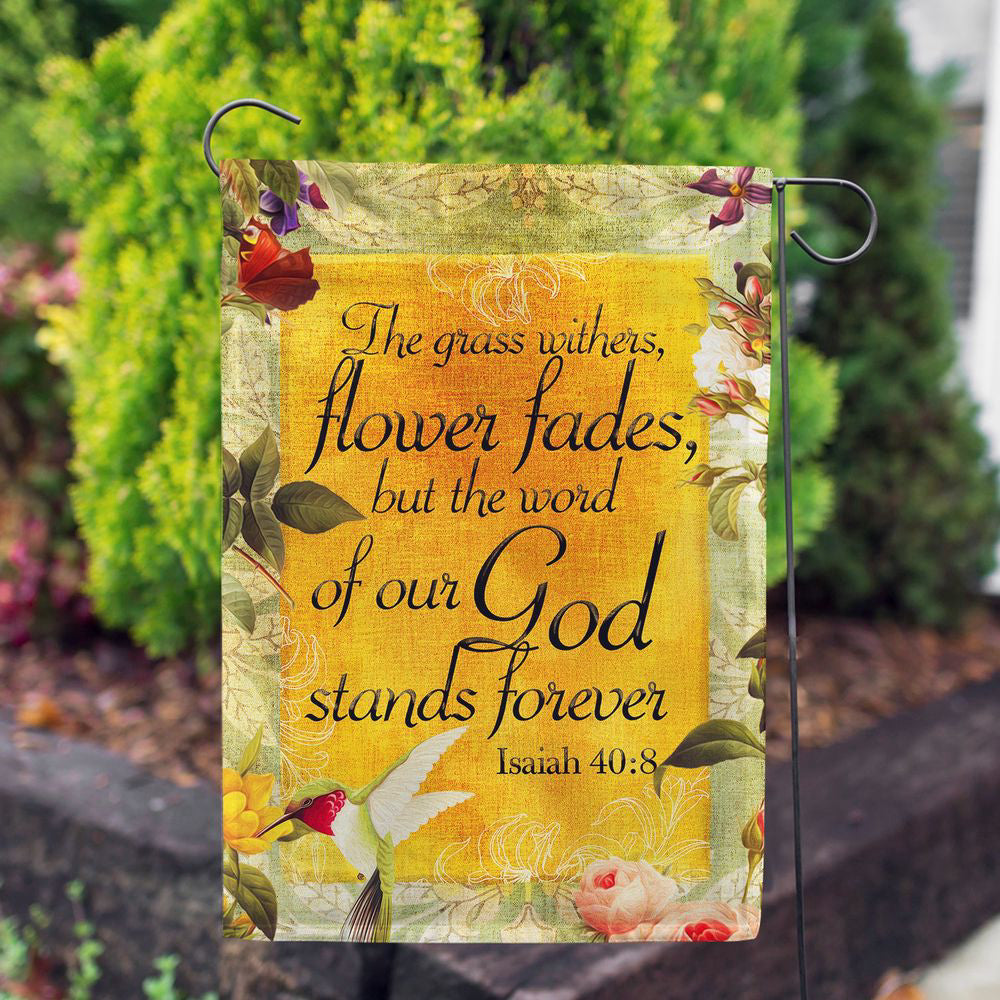 The grass withers,
flower fades,
but the word
of our God
stands forever
Isaiah 40:8